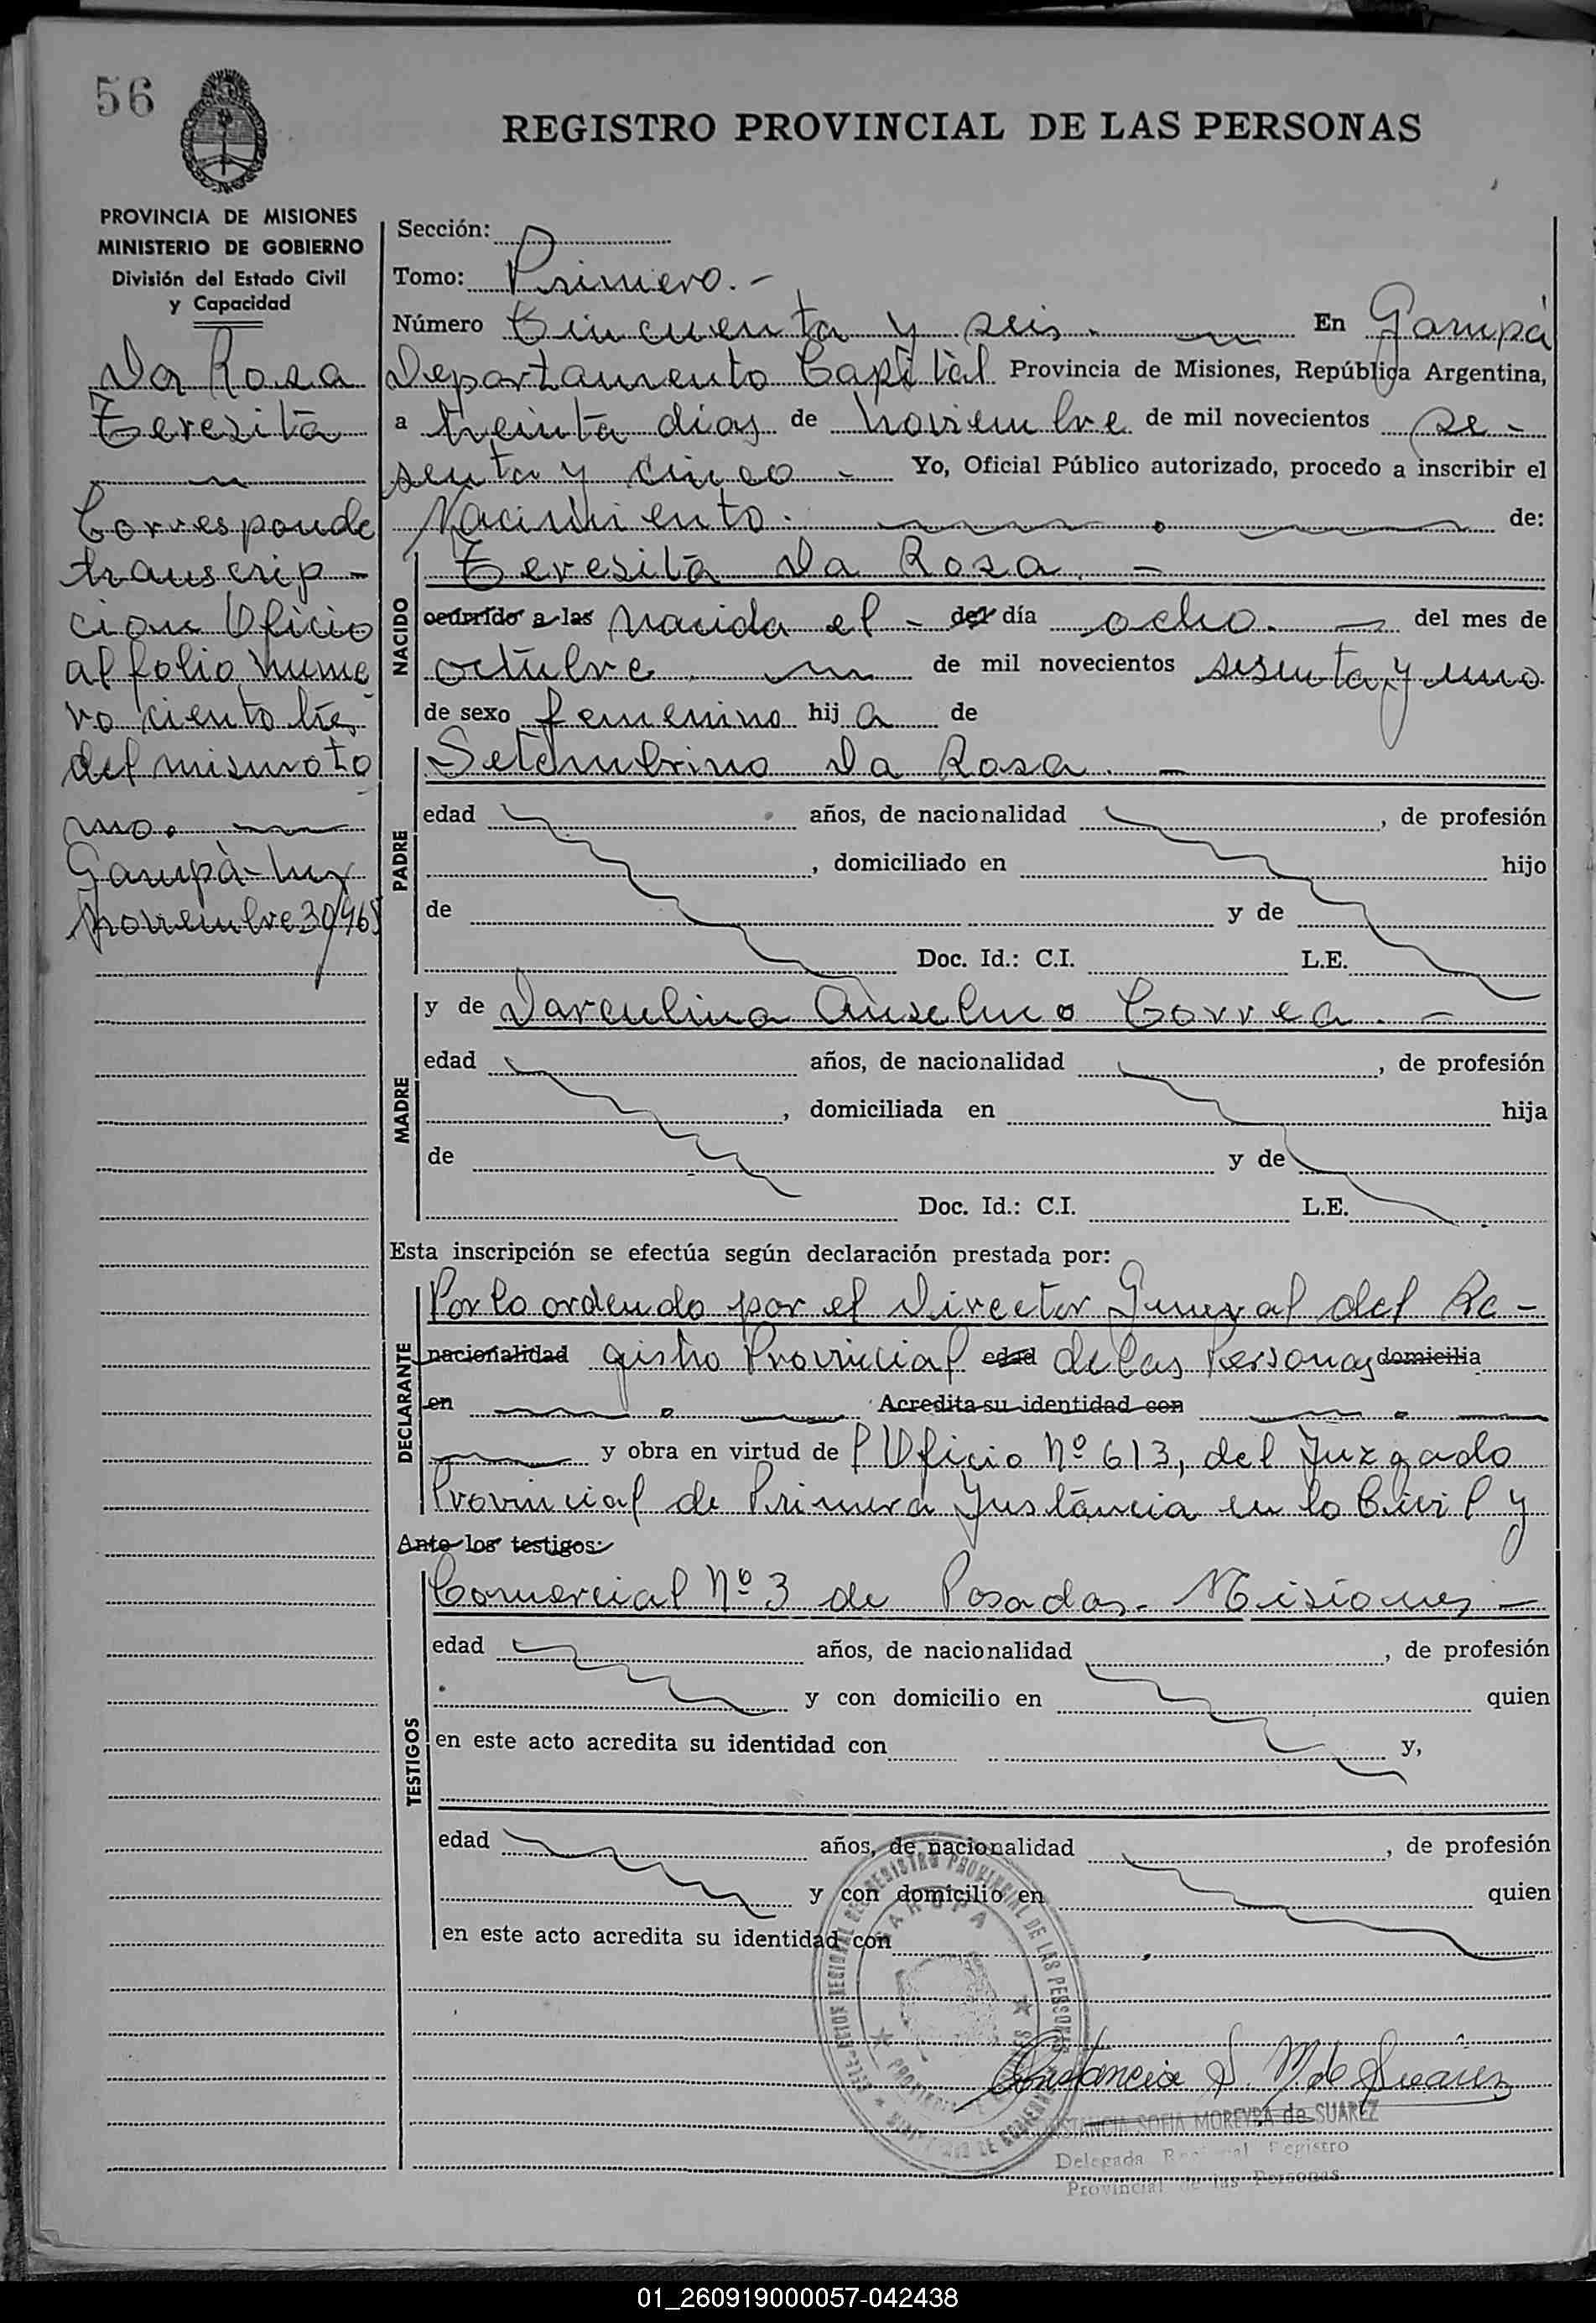 56
REGISTRO PROVINCIAL DE LAS PERSONAS
PROVINCIA DE MISIONES
MINISTERIO DE GOBIERNO
División del Estado Civil
y Capacidad
Da Rosa
Teresita
Corresponde
transcrip-
cion Oficio
al folio nume
ro ciento tres
del mismo to
mo.
Garupá-
noviembre 30/965
Sección:
Tomo: Primero.-
Número Cincuenta y seis. En Garupá
Departamento Capital Provincia de Misiones, República Argentina,
a treinta dias de noviembre de mil novecientos se-
senta y cinco - Yo, Oficial Público autorizado, procedo a inscribir el
Nacimiento. de:
NACIDO
Teresita Da Rosa. -
ocurrido a las nacida el - del día ocho. del mes de
octubre. de mil novecientos sesenta y uno
de sexo femenino hij a de
PADRE
Setembrino Da Rosa. -
edad años, de nacionalidad , de profesión
, domiciliado en hijo
de y de
Doc. Id.: C.I. L.E.
MADRE
y de Darculina Anselmo Correa. -
edad años, de nacionalidad , de profesión
, domiciliada en hija
de y de
Doc. Id.: C.I. L.E.
Esta inscripción se efectúa según declaración prestada por:
DECLARANTE
Por lo ordendo por el Director General del Re-
nacionalidad gistro Provincial edad de las Personas domicilia
en Acredita su identidad con
y obra en virtud de Oficio Nº 613, del Juzgado
Provincial de Primera Instancia en lo Civil y
Ante los testigos:
TESTIGOS
Comercial Nº 3 de Posadas- Misiones -
edad años, de nacionalidad , de profesión
y con domicilio en quien
en este acto acredita su identidad con y,
edad años, de nacionalidad , de profesión
y con domicilio en quien
en este acto acredita su identidad con
DELEGACION REGIONAL DEL REGISTRO PROVINCIAL DE LAS PERSONAS
GARUPA
Constancia S. M. de Suárez
CONSTANCIA SOFIA MOREYRA de SUAREZ
Delegada Regional Registro
Provincial de las Personas
01_260919000057-042438